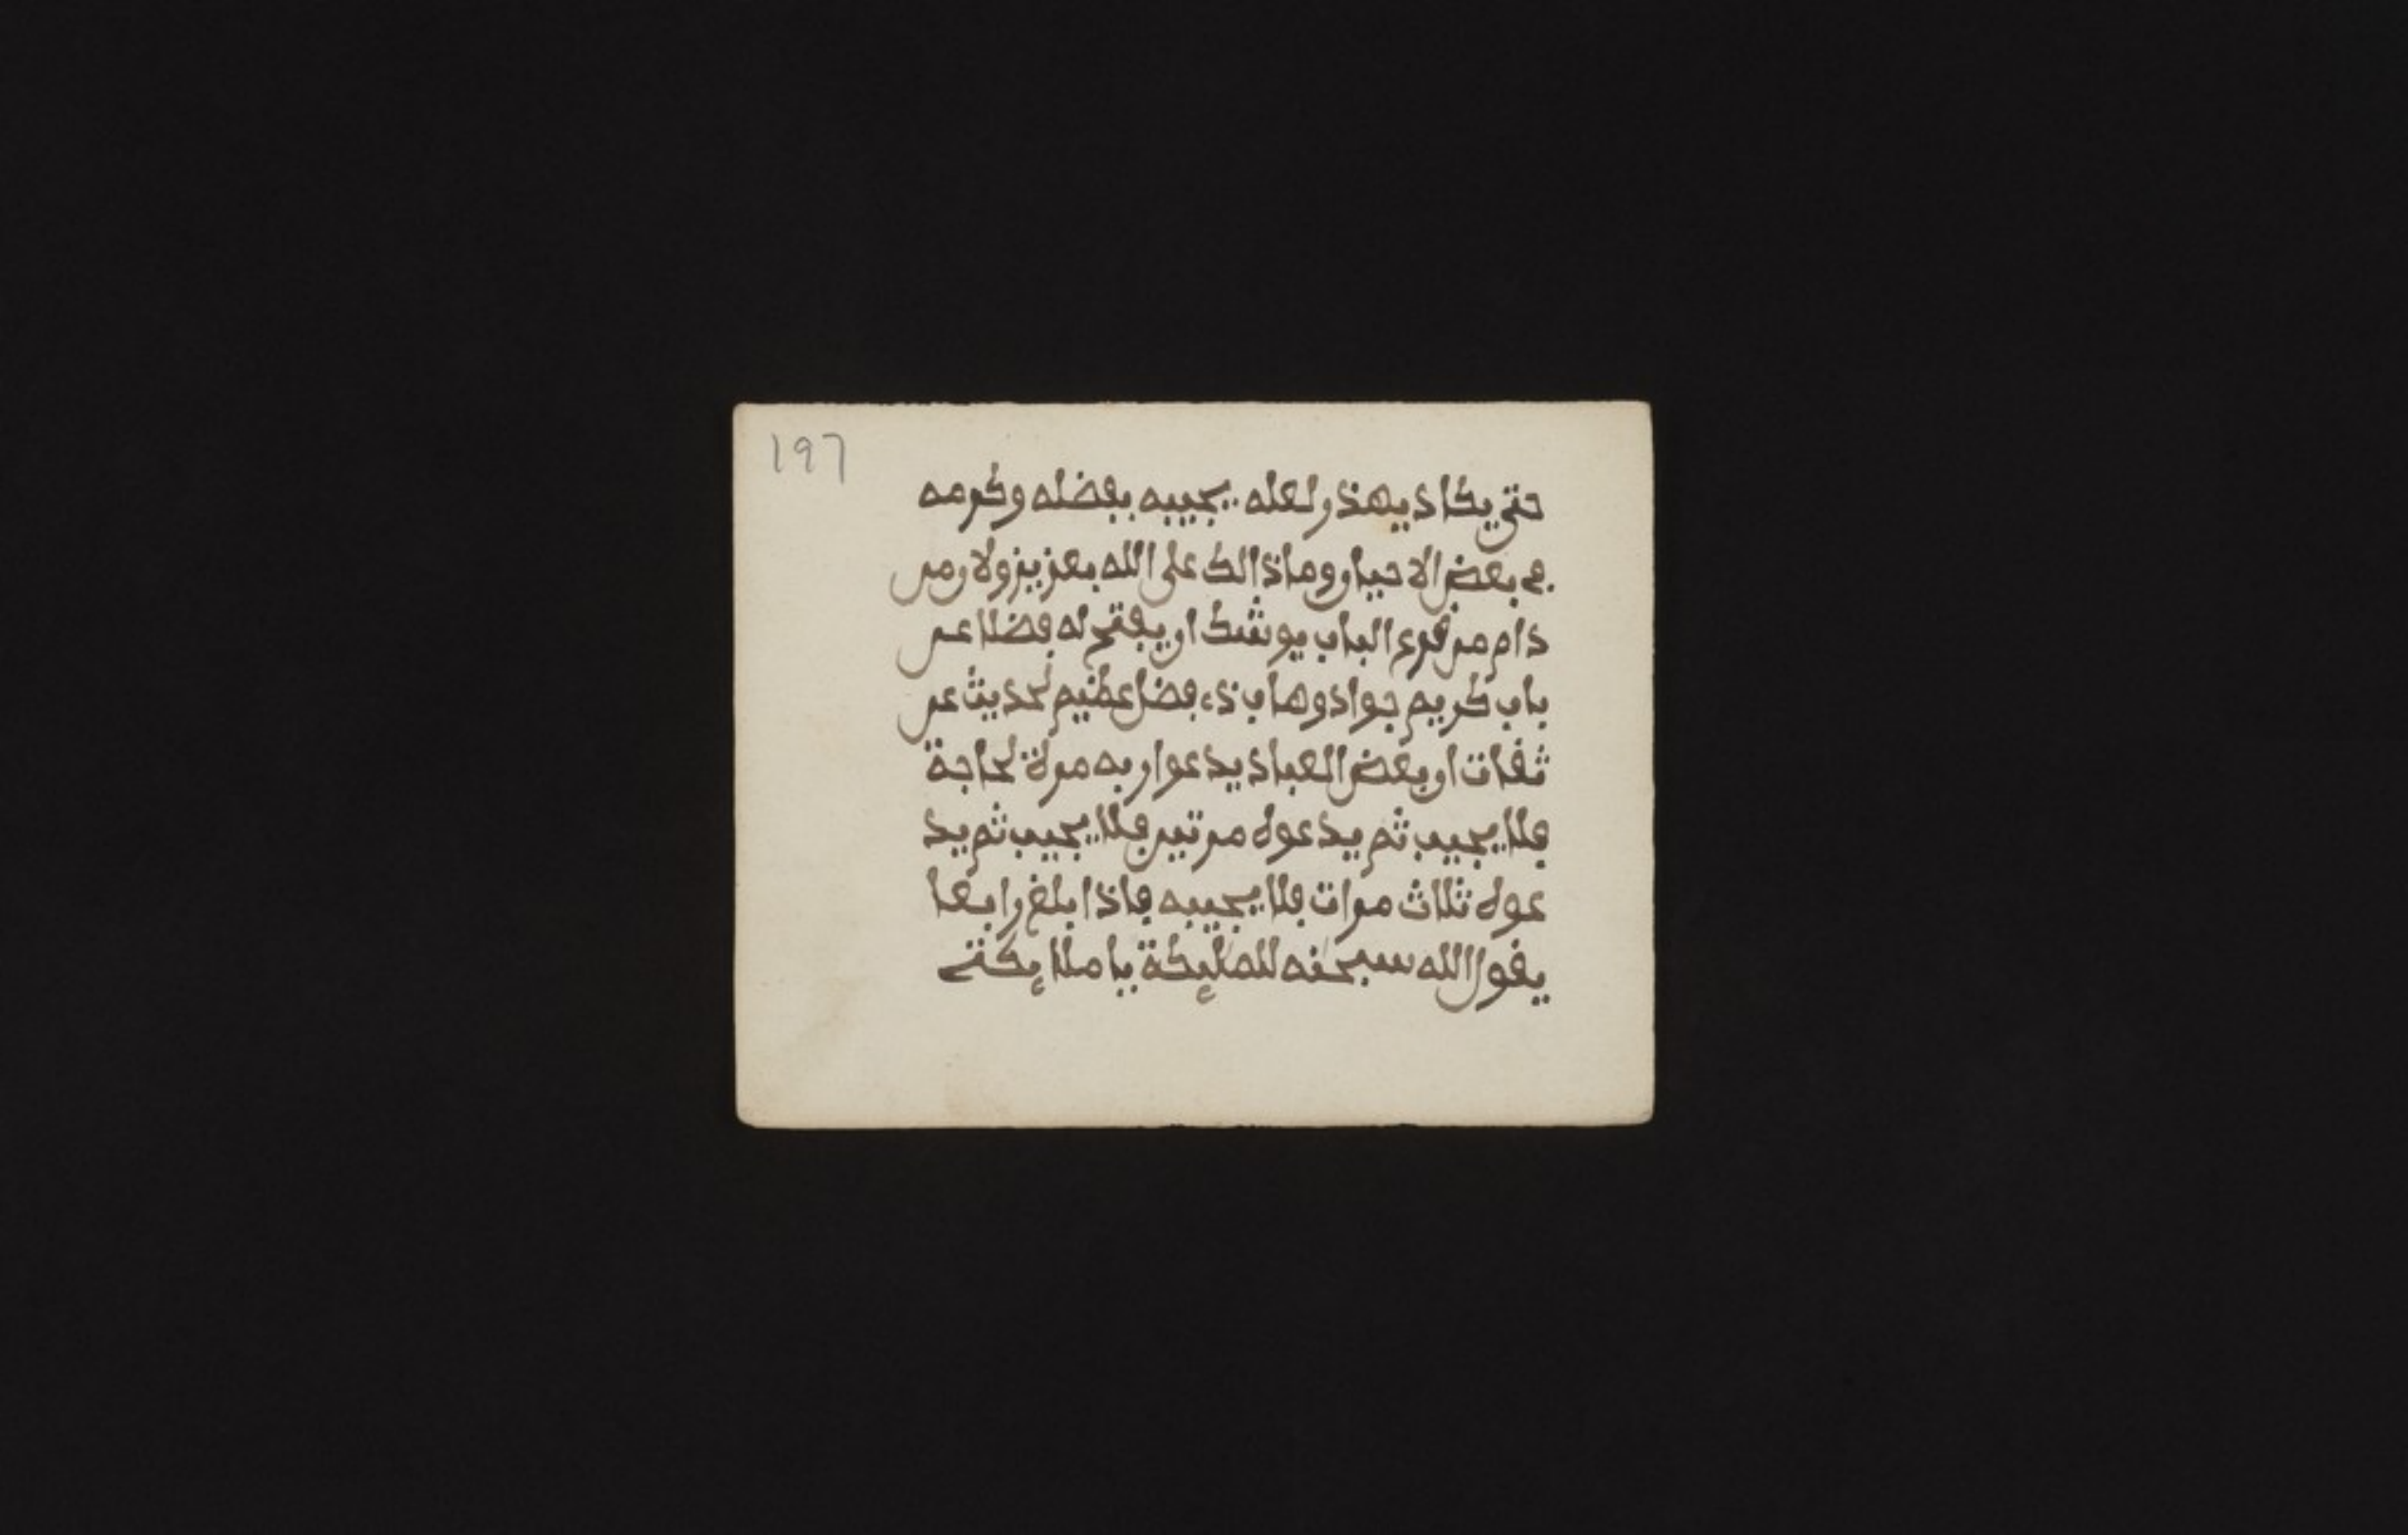 197
حتى يكاد يهذر لعله يجيبه بفضله وكرمه
في بعض الاحيار وما ذالك على الله بعزيز ولا ومن
دام من قرع الباب يوشك ان يفتح له فضلا عن
باب كريم جواد وهاب ذي فضل عظيم لحديث عن
ثقات ان بعض العباد يدعوا ربه مرة لحاجة
فلا يجيب ثم يدعوه مرتين فلا يجيب ثم يد
عوه ثلاث مرات فلا يجيبه فاذا بلغ رابعا
يقول الله سبحنه للمليكة يا ملايكتي